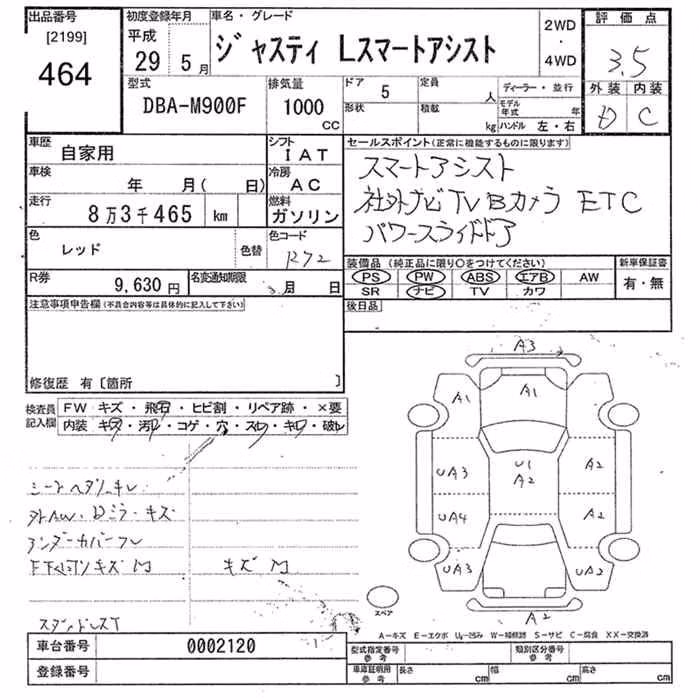 出品番号 初度登録年月 車名・グレード 評価点
[2199] 平成 2WD
464 29 5月 ジャスティ Lスマートアシスト ・ 3.5
4WD
型式 排気量 ドア 5 定員 人 ディーラー・並行 外装 内装
DBA-M900F 1000 cc 形状 積載 kg モデル年式 年 D C
ハンドル 左・右
車歴 自家用 シフト IAT セールスポイント(正常に機能するものに限ります)
車検 年 月( 日) 冷房 AC スマートアシスト
走行 8万3千465 km 燃料 ガソリン 社外ナビ TV Bカメラ ETC
色 レッド 色替 色コード R72 パワースライドドア
装備品 (純正品に限り○をつけてください) 新車保証書
R券 9,630円 名変通知期限 月 日 PS PW ABS エアB AW 有・無
SR ナビ TV カワ
注意事項申告欄(不具合内容等は具体的に記入して下さい) 後日品
修復歴 有〔箇所 〕
検査員 FW キズ・飛石・ヒビ割・リペア跡・×要
記入欄 内装 キズ・汚レ・コゲ・穴・スレ・キレ・破レ
A3
A1 A1
UA3 U1 A2
A2
UA4 A2
UA3 UA2
A2
シートヘタリ、キレ
外AW・Dミラーキズ
アンダーカバーフレ
キズ M
スペア
スタッドレス
A-キズ E-エクボ U-凹み W-補修跡 S-サビ C-腐食 XX-交換済
車台番号 0002120 型式指定番号 参考 類別区分番号 参考
登録番号 車庫証明用 参考 長さ cm 幅 cm 高さ cm